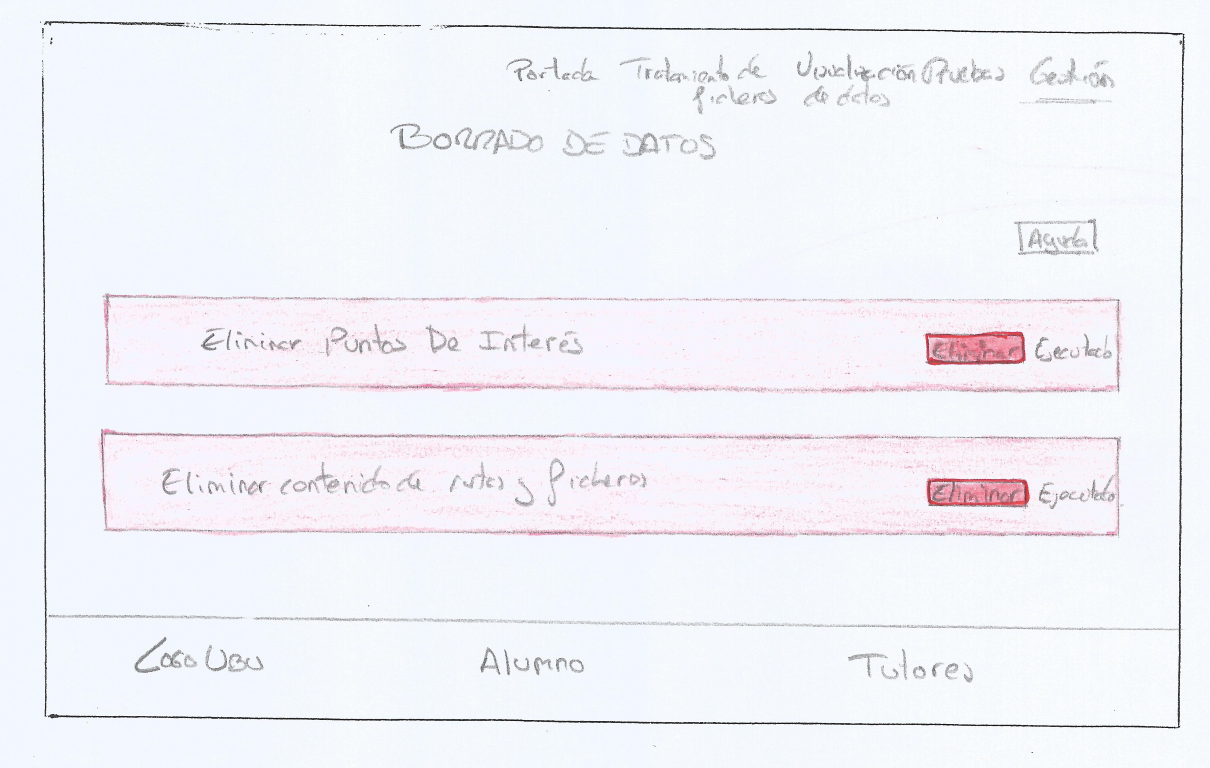 Portada Tratamiento de Visualización Pruebas Gestión
ficheros de datos
BORRADO DE DATOS
Ayuda
Eliminar Puntos De Interés
Eliminar Ejecutado
Eliminar contenido de rutas y ficheros
Eliminar Ejecutado
LOGO UBU Alumno Tutores